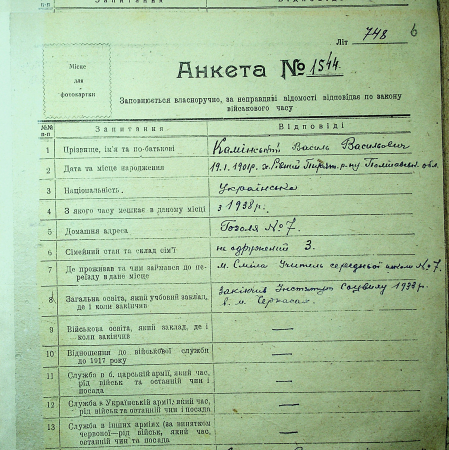 №№ п-п
Запитання
Відповіді
Літ 748 6
Місце
для
фотокартки
Анкета № 1544.
Заповнюється власноручно, за неправдиві відомості відповідає по закону
військового часу
№№ п-п Запитання Відповіді
1 Прізвище, ім'я та по-батькові Камінський Василь Васильович
2 Дата та місце народження 19.I.1901р. х. Рівний
3 Національність. Українська
4 З якого часу мешкає в даному місці з 1938 р.
5 Домашня адреса Гоголя № 7.
6 Сімейний стан та склад сім'ї не одружений 3.
7 Де проживав та чим займався до пе-
реїзду в дане місце
м. Сміла Учитель середньої школи № 7.
8 Загальна освіта, який учбовий заклад,
де і коли закінчив
Закінчив Інститут Соцвиху 1933 р.
в м. Черкасах.
9 Військова освіта, який заклад, де і
коли закінчив —
10 Відношення до військової служби
до 1917 року —
11 Служба в б. царській армії, який час,
рід військ та останній чин і
посада —
12 Служба в Українській армії, який час,
рід військ та останній чин і посада —
13 Служба в інших арміях (за винятком
червоної—рід військ, який час,
останній чин та посада —